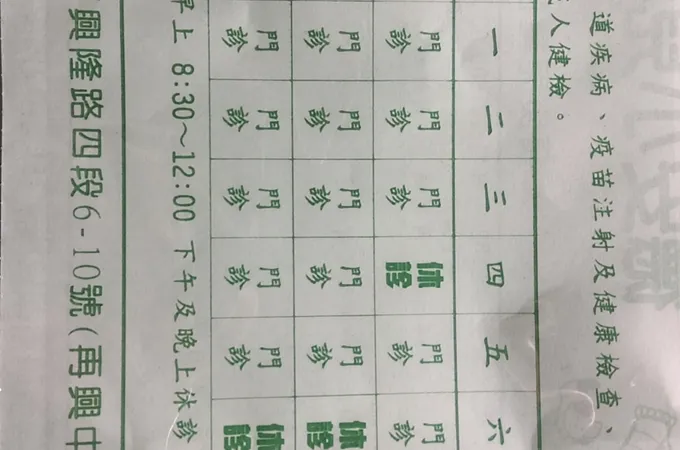 道疾病、疫苗注射及健康檢查、
人健檢。
一 二 三 四 五 六
門診 門診 門診 休診 門診 門診
門診 門診 門診 門診 門診 休診
門診 門診 門診 門診 門診 休診
早上 8:30~12:00 下午及晚上休診
興隆路四段6-10號(再興中